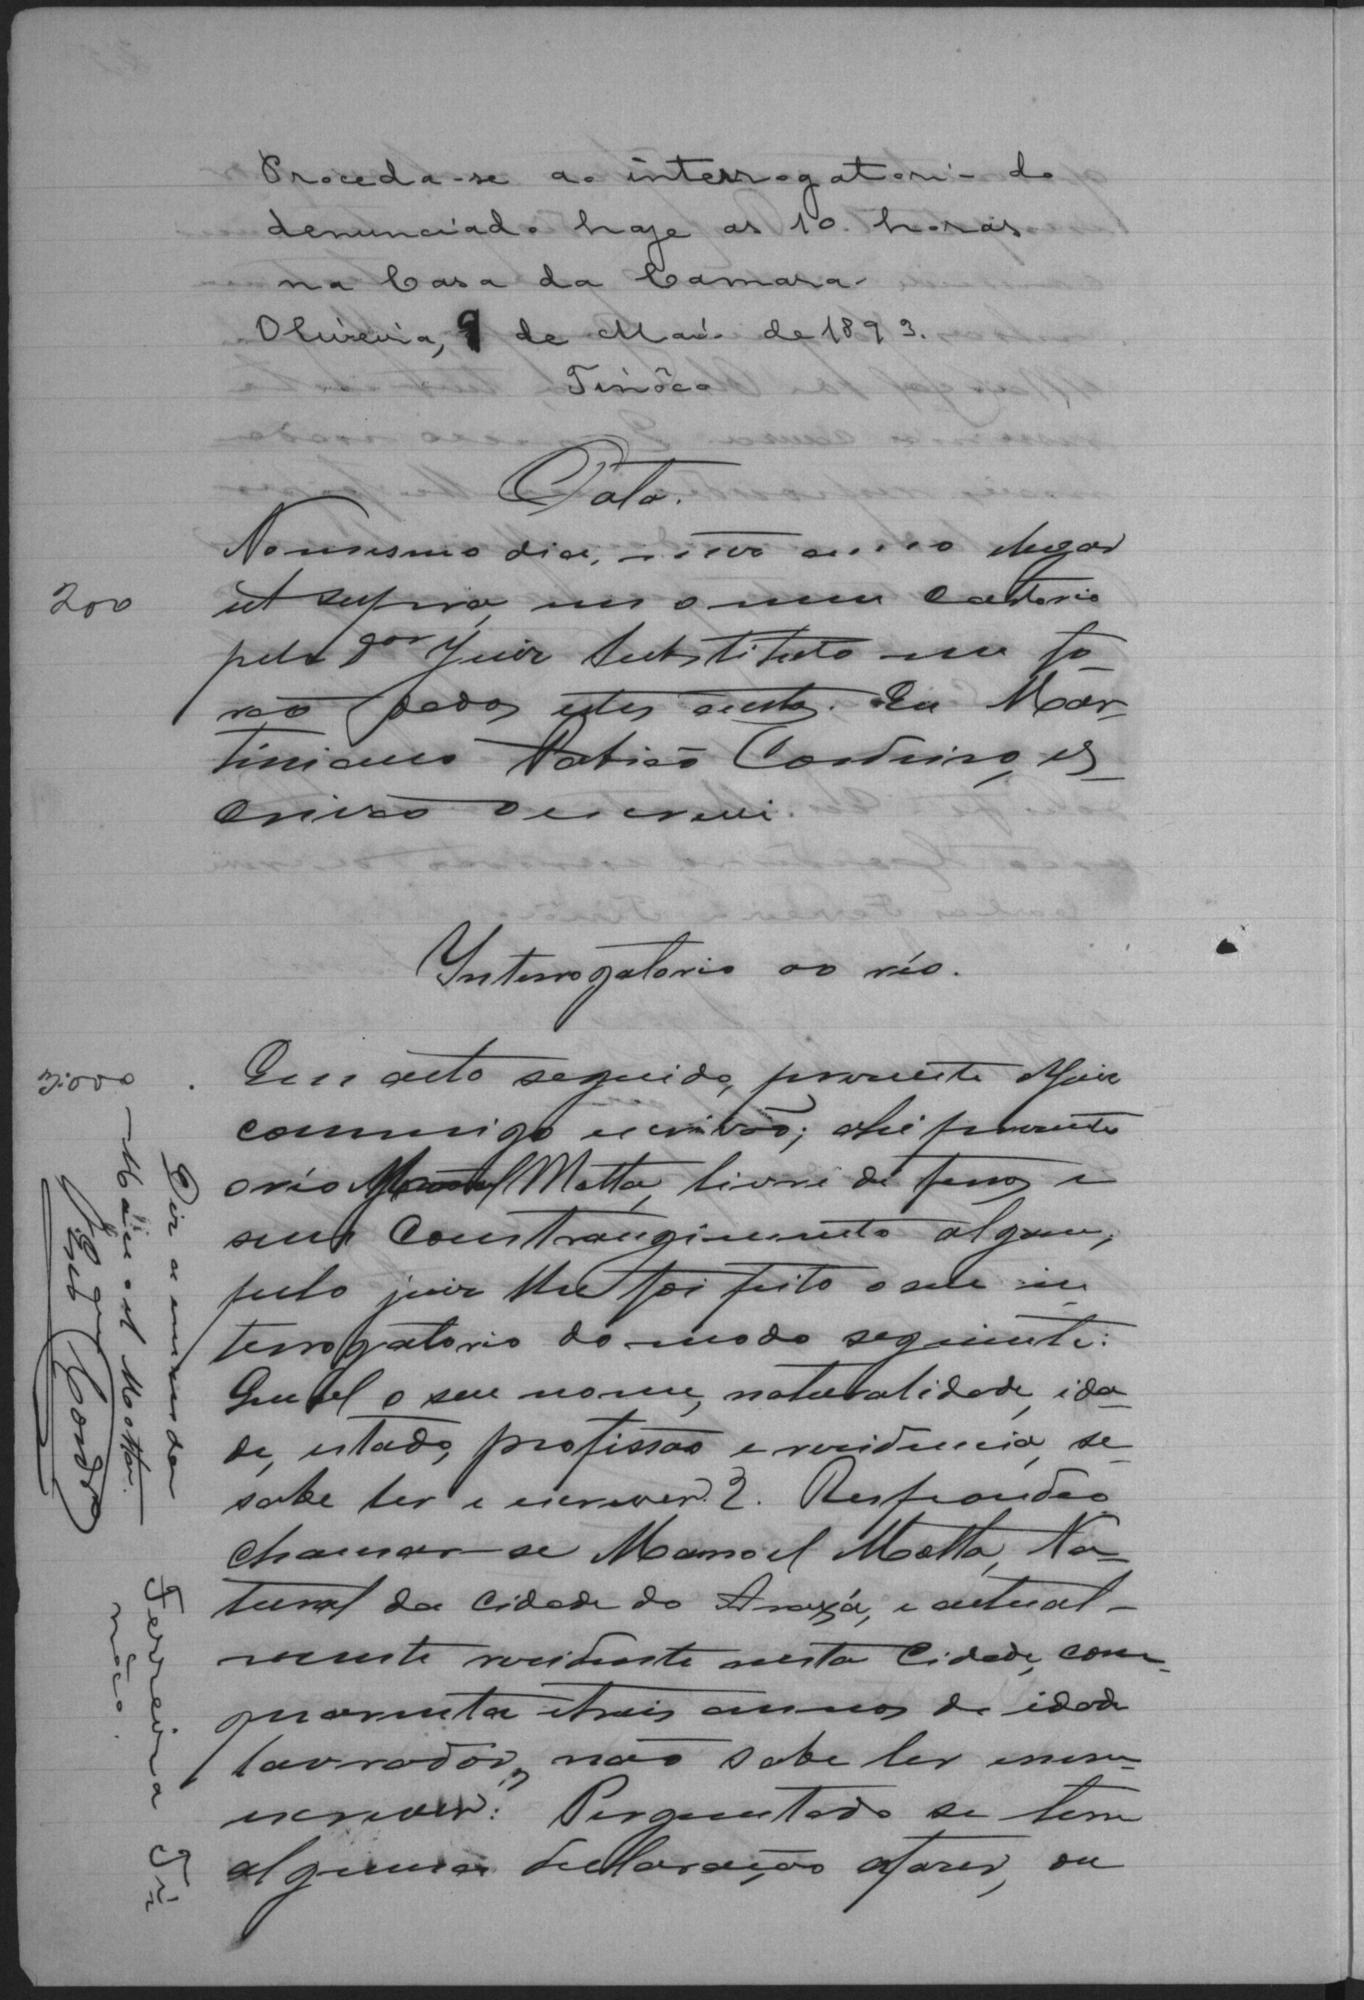 Proceda-se ao interrogatorio do
denunciado hoje as 10 horas
na Casa da Camara.
Oliveira, 9 de Maio de 1893.
Tinôco
Data.
No mesmo dia, anno lugar
200
ut supra, em o meu cartorio
pelo Dor Juiz Substituto me fo-
rão dados estes autos. Eu Mar-
tiniano Cordeiro, es-
crivão o escrevi.
Interrogatorio ao réo.
3:000
Em acto seguido, presente o Juiz
commigo escrivão; ahi presente
o réo Manoel Motta, livre de ferros e
sem constrangimento algum,
pelo juiz lhe foi feito o seu in
terrogatorio do modo seguinte:
Qual o seu nome, naturalidade, ida-
de, estado, profissão e residencia, se
sabe ler e escrever?. Respondeo
chamar-se Manoel Motta, Na-
tural da cidade do Araxá, e actual-
mente residente nesta Cidade, com
quarenta e trais annos de idade
lavrador, não sabe ler nem
escrever. Perguntado se tem
alguma declaração afazer, ou
Diz a emenda
Manoel Motta.
Eu que
Ferreira Ti
nôco.